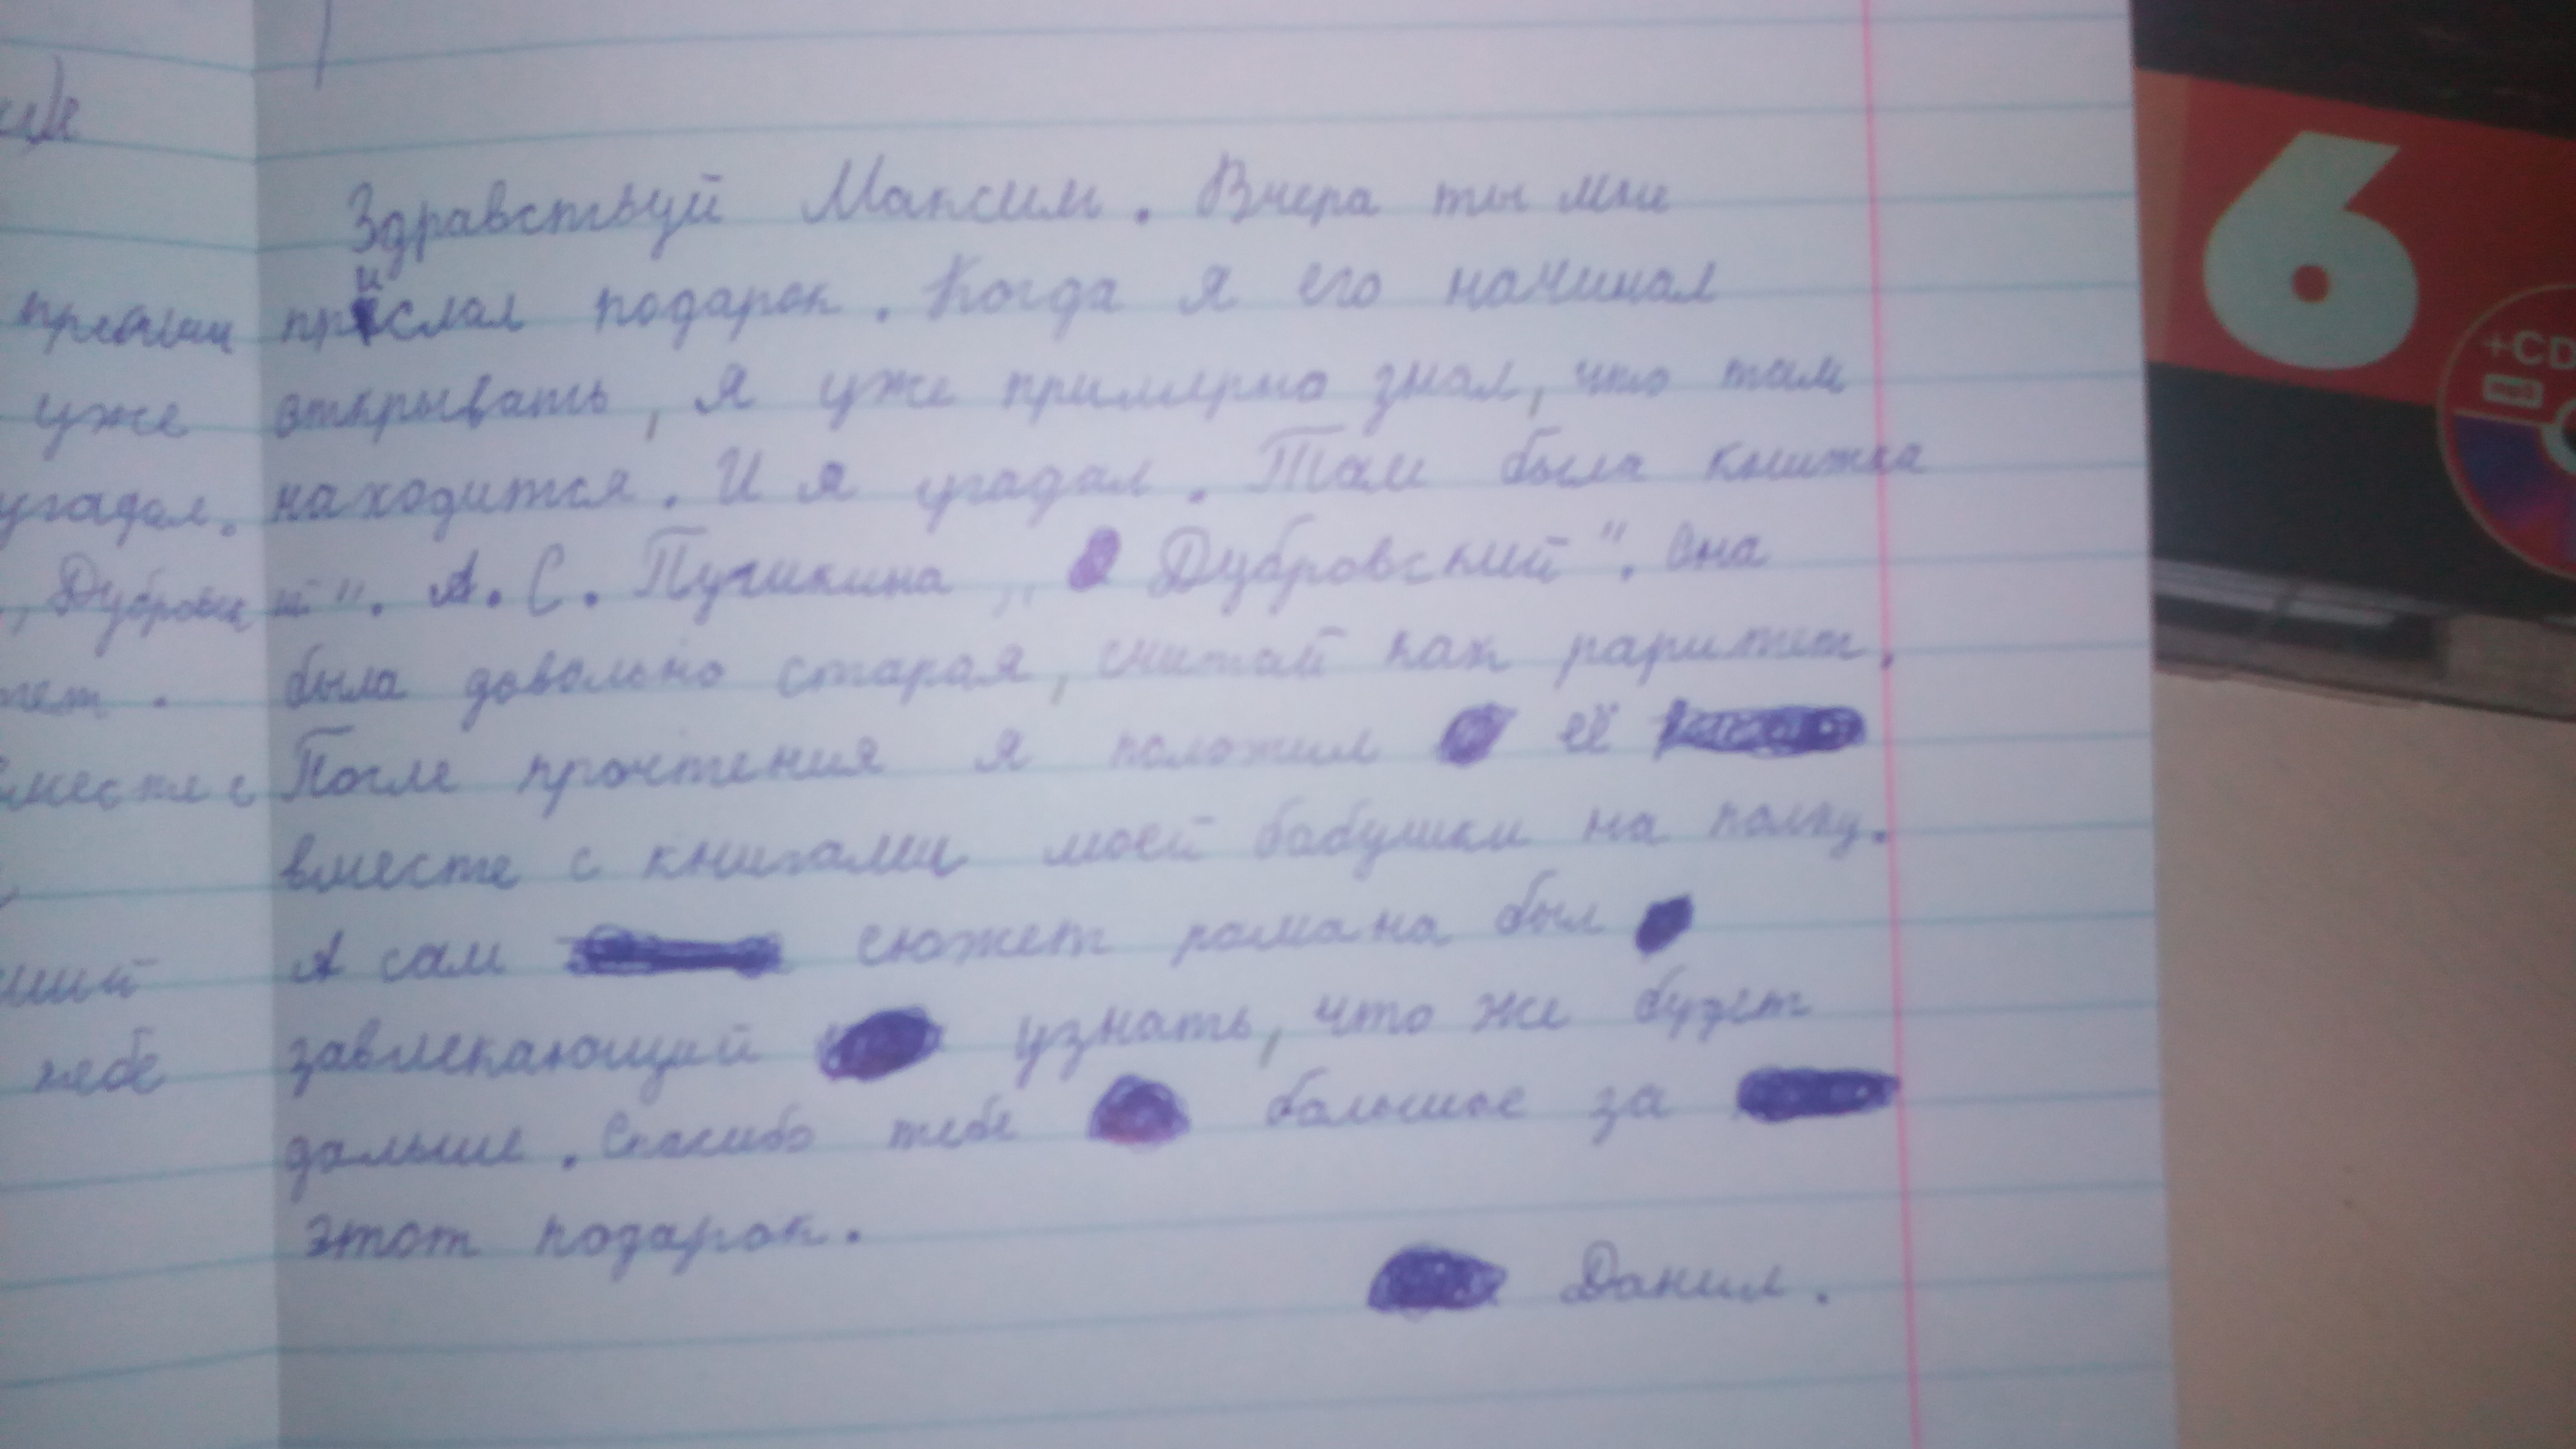 Здравствуй Максим. Вчера ты мне
прислал подарок. Когда я его начинал
открывать, я уже примерно знал, что там
находится. И я угадал. Там была книжка
А. С. Пушкина „ Дубровский". Она
была довольно старая, считай как раритет.
После прочтения я положил её
вместе с книгами моей бабушки на полку.
А сам сюжет романа был
завлекающий узнать, что же будет
дальше. Спасибо тебе большое за
этот подарок.
Данил.
уже
угадал.
„Дубровский".
вместе с
тебе
6
+CD
mp3